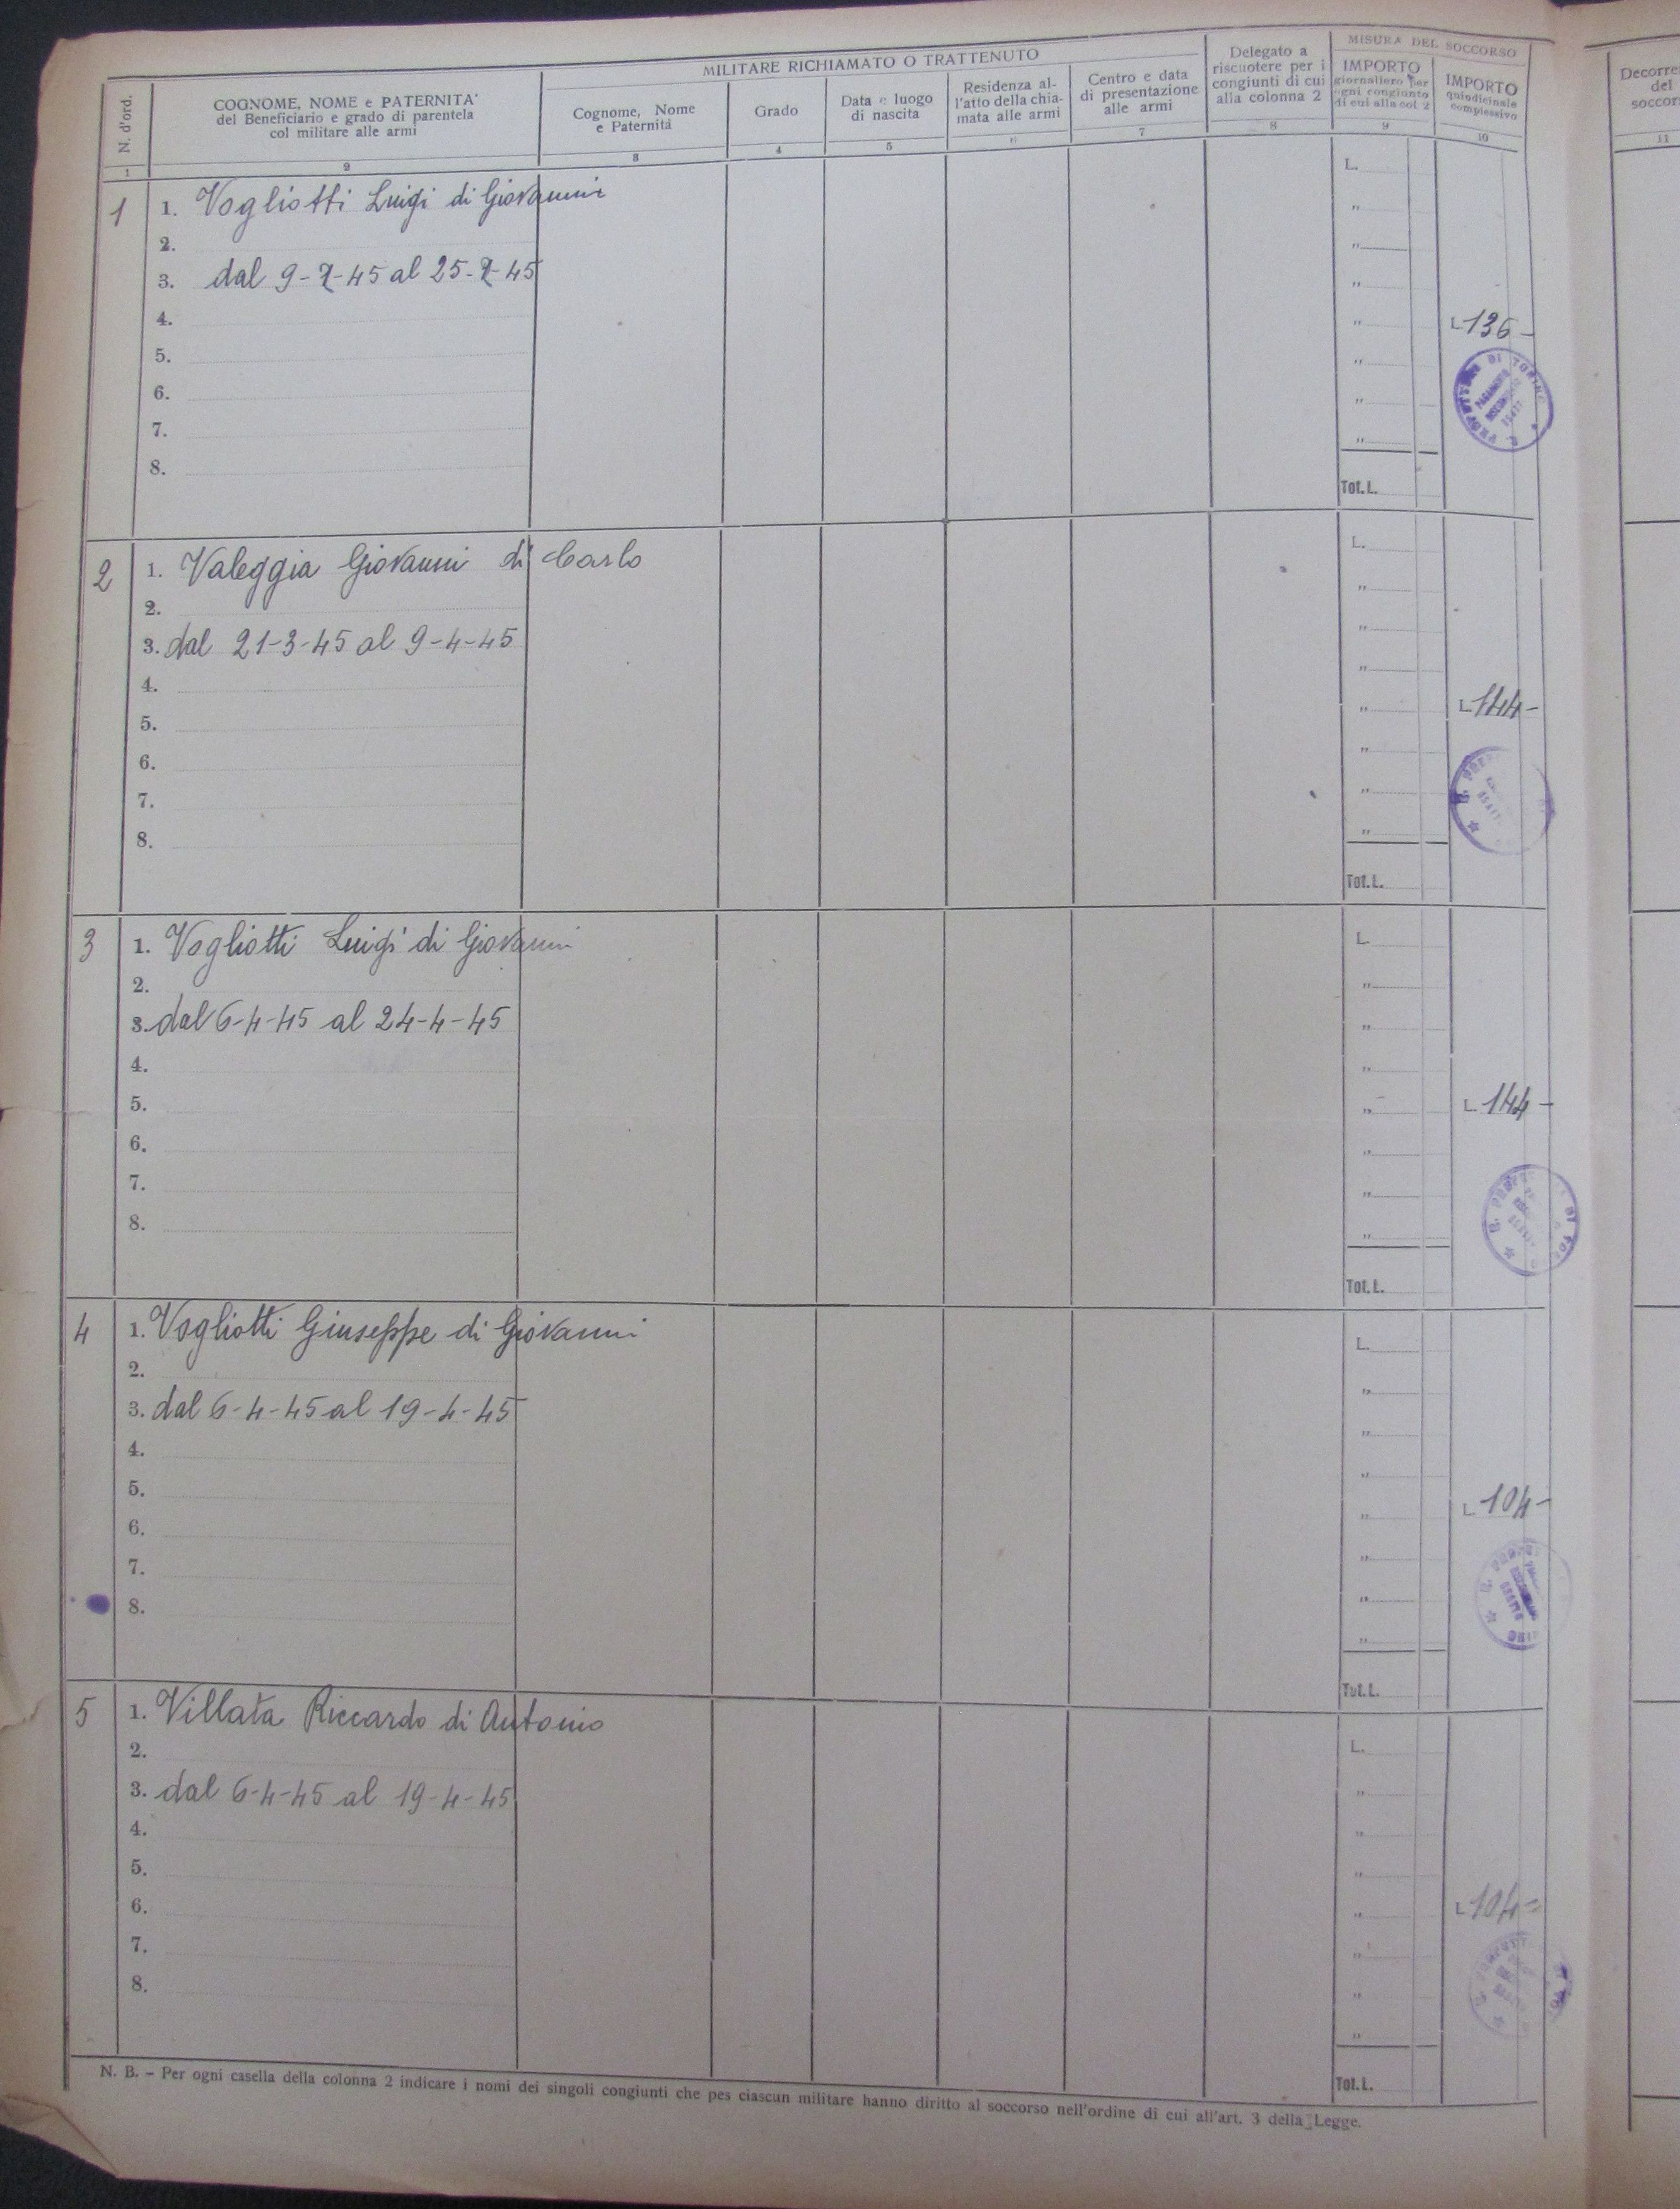 MILITARE RICHIAMATO O TRATTENUTO
MISURA DEL SOCCORSO
N. d'ord.
COGNOME, NOME e PATERNITA'
del Beneficiario e grado di parentela
col militare alle armi
Cognome, Nome
e Paternità
Grado
Data e luogo
di nascita
Residenza al-
l'atto della chia-
mata alle armi
Centro e data
di presentazione
alle armi
Delegato a
riscuotere per i
congiunti di cui
alla colonna 2
IMPORTO
giornaliero per
ogni congiunto
di cui alla col. 2
IMPORTO
quindicinale
complessivo
Decorre
del
soccor
1 2 3 4 5 6 7 8 9 10 11
1 1. Vogliotti Luigi di Giovanni L.
2. "
3. dal 9-2-45 al 25-2-45 "
4. " L 136-
5. "
R. PREFETTURA DI TORINO
6. "
7. "
8. Tot. L.
2 1. Valeggia Giovanni di Carlo L.
2. "
3. dal 21-3-45 al 9-4-45 "
4. "
5. " L. 144-
6. "
7. "
8. "
Tot. L.
3 1. Vogliotti Luigi di Giovanni L.
2. "
3. dal 6-4-45 al 24-4-45 "
4. "
5. " L. 144-
6. "
7. "
8. "
Tot. L.
4 1. Vogliotti Giuseppe di Giovanni L.
2. "
3. dal 6-4-45 al 19-4-45 "
4. "
5. " L 104-
6. "
7. "
8. "
Tot. L.
5 1. Villata Riccardo di Antonio L.
2. "
3. dal 6-4-45 al 19-4-45 "
4. "
5. "
6. " L 104=
7. "
8. "
Tot. L.
N. B. - Per ogni casella della colonna 2 indicare i nomi dei singoli congiunti che pes ciascun militare hanno diritto al soccorso nell'ordine di cui all'art. 3 della Legge.